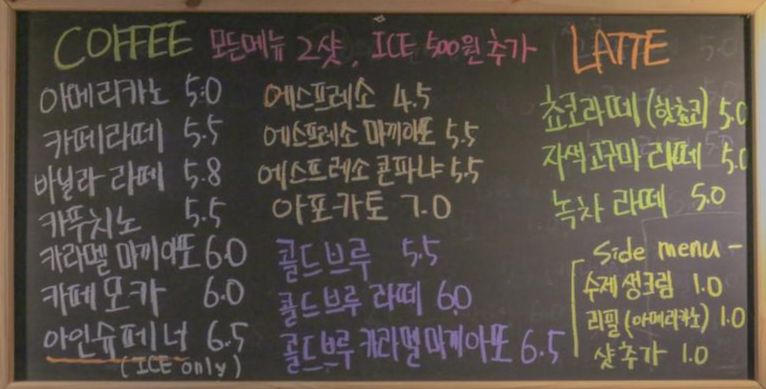 COFFEE 모든메뉴 2샷, ICE 500원 추가
아메리카노 5.0
카페라떼 5.5
바닐라 라떼 5.8
카푸치노 5.5
카라멜 마끼아또 6.0
카페모카 6.0
아인슈페너 6.5
(ICE only)
에스프레소 4.5
에스프레소 마끼아또 5.5
에스프레소 콘파냐 5.5
아포카토 7.0
콜드브루 5.5
콜드브루 라떼 6.0
콜드브루 카라멜마끼아또 6.5
LATTE
쵸코라떼 (핫쵸코) 5.0
자색고구마 라떼 5.0
녹차 라떼 5.0
Side menu -
수제 생크림 1.0
리필 (아메리카노) 1.0
샷 추가 1.0